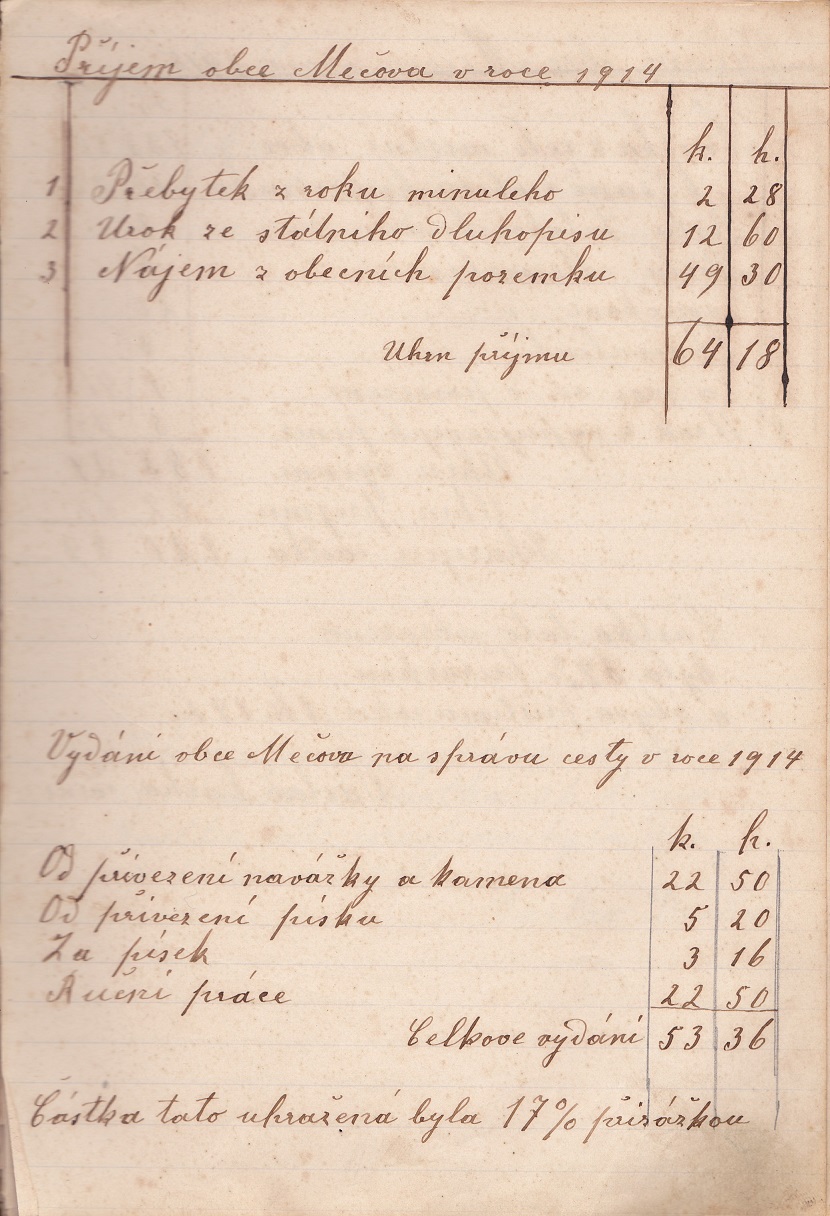 Příjem obce Mečova v roce 1914
k. h.
1 Přebytek z roku minuleho 2 28
2 Urok ze stálniho dluhopisu 12 60
3 Nájem z obecních pozemku 49 30
Uhrn příjmu 64 18
Vydání obce Mečova na správu cesty v roce 1914
k. h.
Od přivezení navážky a kamena 22 50
Od přivezení písku 5 20
Za písek 3 16
Ruční práce 22 50
Celkove vydání 53 36
Částka tato uhražená byla 17% přirážkou